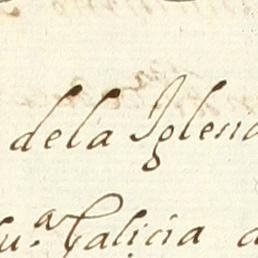 dela Iglesia
su.ª Galicia a